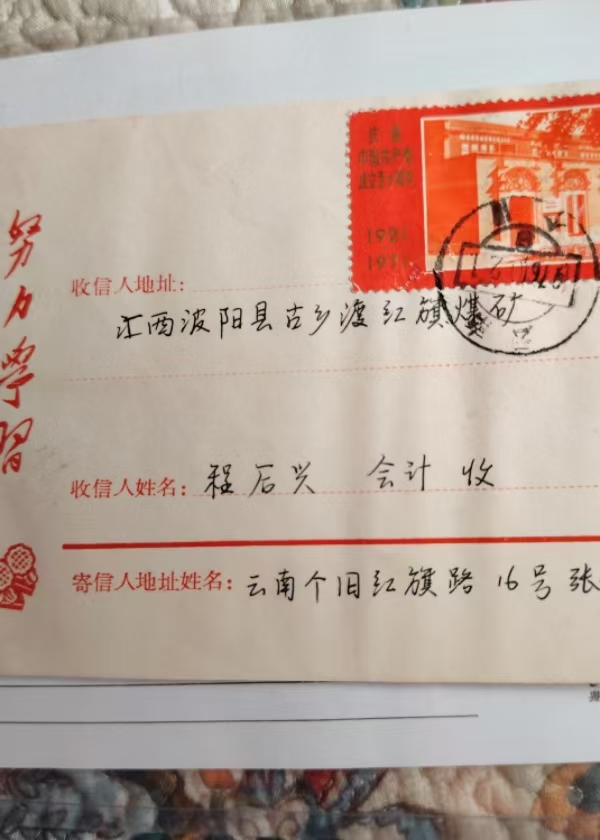 庆祝
中国共产党
成立五十周年
1921
1971
努力学习
收信人地址:
江西波阳县古乡渡红旗煤矿
收信人姓名:程后兴 会计 收
寄信人地址姓名:云南个旧红旗路16号张